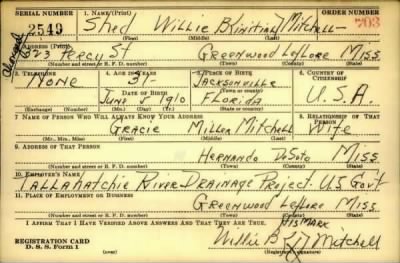 SERIAL NUMBER 1. NAME (Print) ORDER NUMBER
2549 Shed Willie B (initial) Mitchell 703
(First) (Middle) (Last)
2. ADDRESS (Print)
623 Percy St Greenwood Leflore Miss
(Number and street or R. F. D. number) (Town) (County) (State)
3. TELEPHONE 4. AGE IN YEARS 5. PLACE OF BIRTH 6. COUNTRY OF CITIZENSHIP
None 31 Jacksonville
DATE OF BIRTH (Town or county)
June 1910 Florida U.S.A.
(Exchange) (Number) (Mo.) (Day) (Yr.) (State or country)
7. NAME OF PERSON WHO WILL ALWAYS KNOW YOUR ADDRESS 8. RELATIONSHIP OF THAT PERSON
Gracie Miller Mitchell Wife
(Mr., Mrs., Miss) (First) (Middle) (Last)
9. ADDRESS OF THAT PERSON
Hernando DeSoto Miss
(Number and street or R. F. D. number) (Town) (County) (State)
10. EMPLOYER'S NAME
Tallahatchie River Drainage Project. U.S Gov't
11. PLACE OF EMPLOYMENT OR BUSINESS
Greenwood Leflore Miss
(Number and street or R. F. D. number) (Town) (County) (State)
I AFFIRM THAT I HAVE VERIFIED ABOVE ANSWERS AND THAT THEY ARE TRUE.
HIS MARK
REGISTRATION CARD Willie B Mitchell
D. S. S. Form 1 (Registrant's signature)